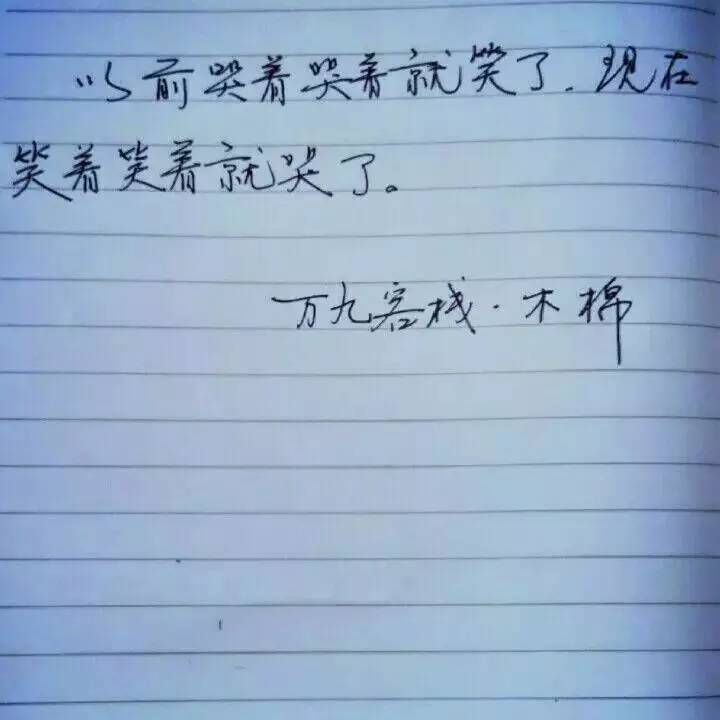 以前哭着哭着就笑了.现在
笑着笑着就哭了。
万九客栈·木棉